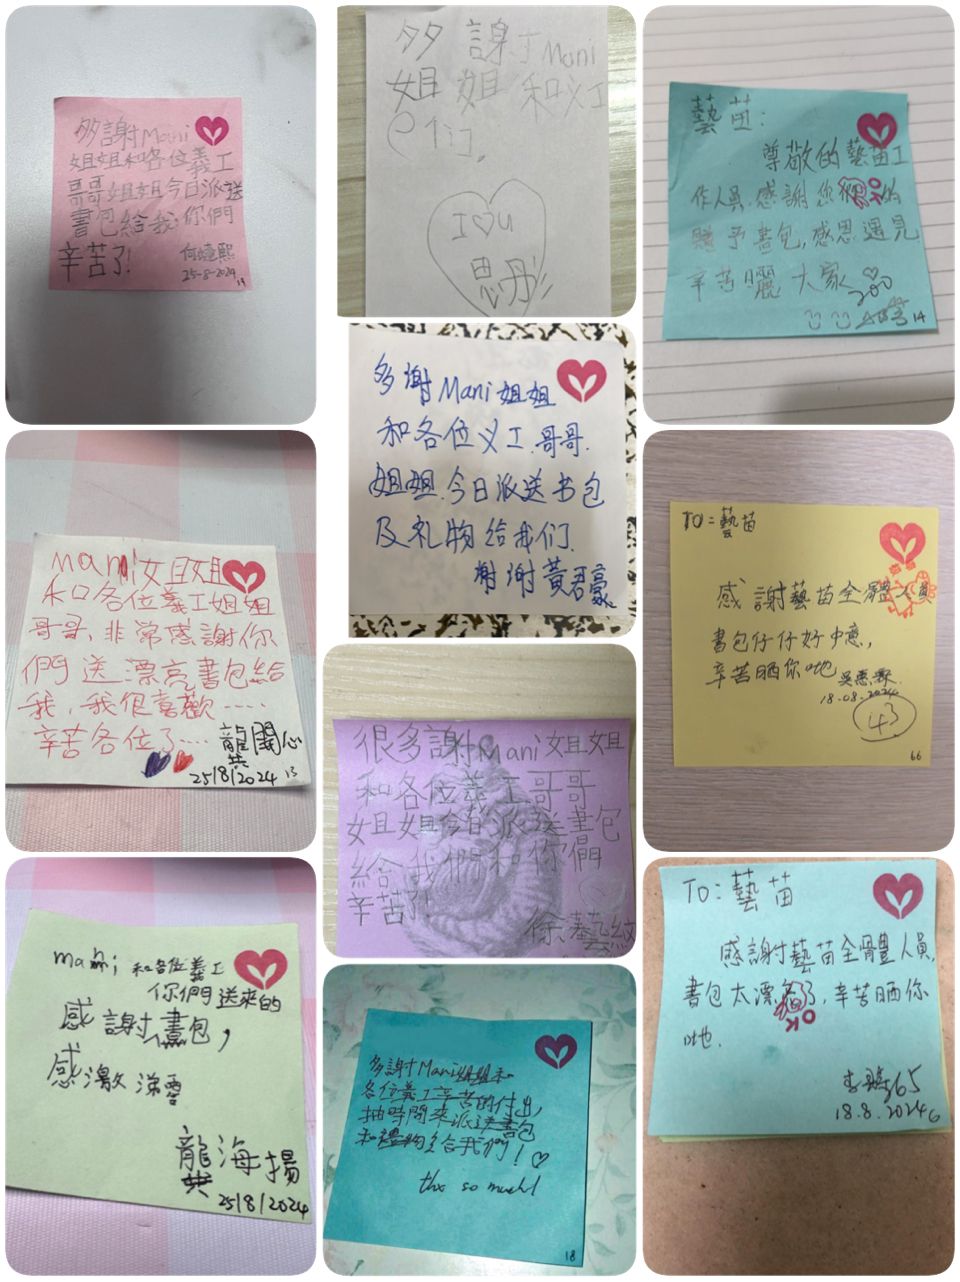 多謝Mani
姐姐和各位義工
哥哥姐姐今日派送
書包給我,你們
辛苦了!
熙
25-8-2024
19
多謝Mani
姐姐和义工
们.
I♡u
思丹
藝苗:
尊敬的藝苗工
作人員,感謝您們的
贈予書包,感恩遇見
辛苦曬大家
14
多谢Mani姐姐
和各位义工.哥哥.
姐姐.今日派送书包
及礼物给我们.
谢谢黃君豪
mani姐姐
和各位義工姐姐
哥哥、非常感謝你
們送漂亮書包給
我,我很喜歡.....
辛苦各位了....龔開心
25/8/2024 13
TO:藝苗
感謝藝苗全體人員
書包仔仔好中意,
辛苦晒你哋
18.08.2024
43
66
很多謝Mani姐姐
和各位義工哥哥
姐姐今日派送書包
給我們和你們
辛苦了!
徐藝紋
mani 和各位義工
你們送來的
感謝書包,
感激涕零
龔海揚
25/8/2024
多謝Mani姐姐和
各位義工辛苦的付出,
抽時間來派送書包
和禮物給我們!♡
thx so much!
18
TO:藝苗
感謝藝苗全體人員,
書包太漂亮了,辛苦晒你
哋.
65
18.8.2024